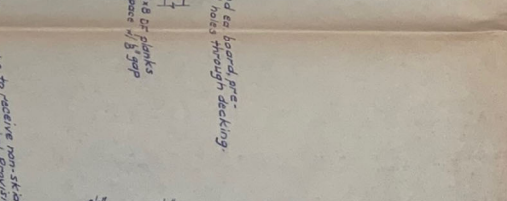 d ea board, pre-
holes through decking.
x8 DF planks
pace w/ 1/8" gap
to receive non-skid